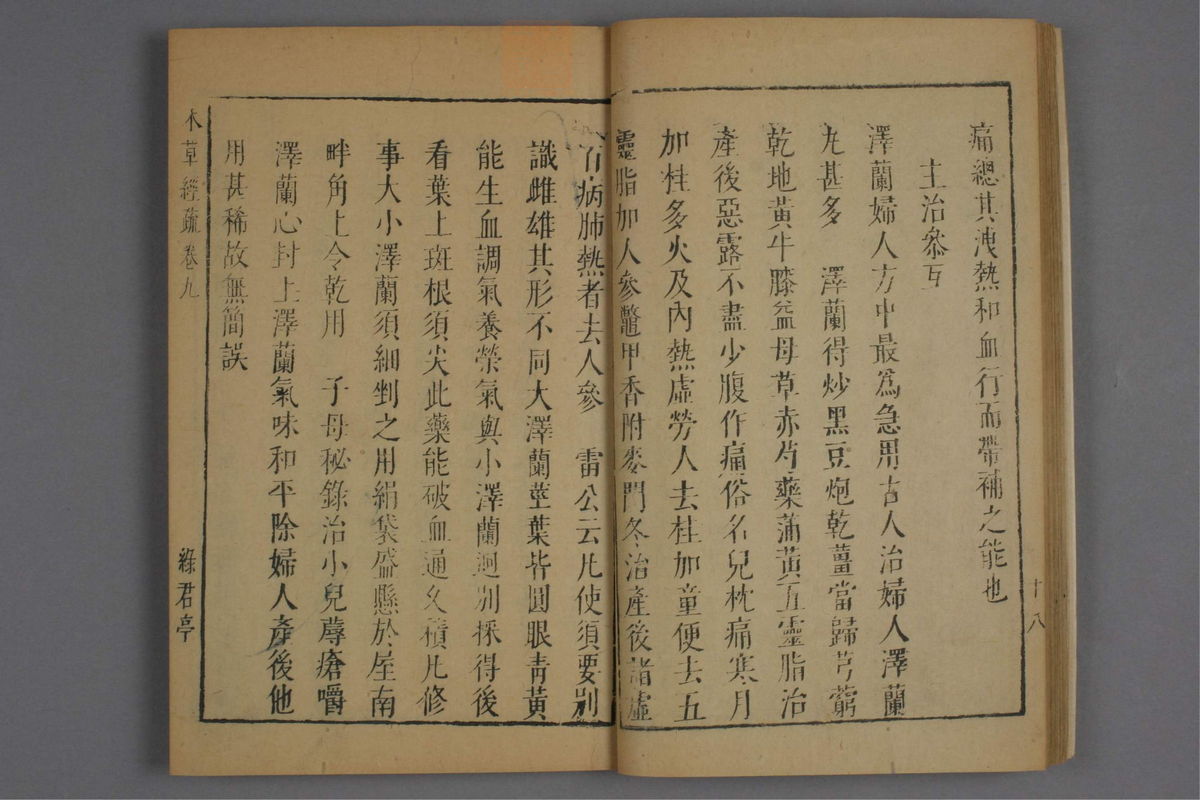 痛總其洩熱和血行而帶補之能也
主治叅互
澤蘭婦人方中最爲急用古人治婦人澤蘭
九甚多 澤蘭得炒黑豆炮乾薑當歸芎藭
乾地黃牛膝益母草赤芍藥蒲黃五靈脂治
產後惡露不盡少腹作痛俗名兒枕痛寒月
加桂多火及內熱虛勞人去桂加童便去五
靈脂加人參鼈甲香附麥門冬治產後諸虛
百病肺熱者去人參 雷公云凡使須要别
識雌雄其形不同大澤蘭莖葉皆圓眼青黃
能生血調氣養榮氣與小澤蘭迥别採得後
看葉上斑根須尖此藥能破血通久積凡修
事大小澤蘭須細剉之用絹袋盛懸於屋南
畔角上令乾用 子母秘錄治小兒蓐瘡嚼
澤蘭心封上澤蘭氣味和平除婦人產後他
用甚稀故無簡誤
本草經疏 卷九
綠君亭
十八